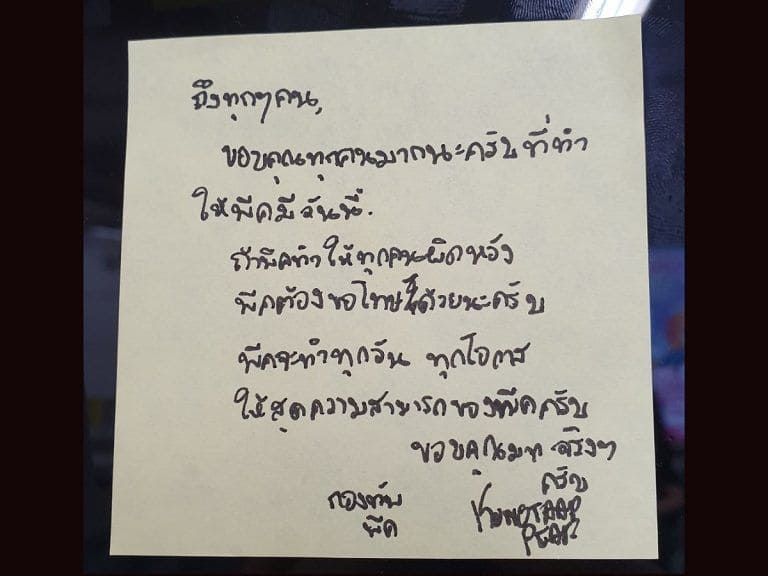 ถึงทุกๆคน,
ขอบคุณทุกคนมากนะครับที่ทำ
ให้พีคมีวันนี้.
ถ้าพีคทำให้ทุกคนผิดหวัง
พีคต้องขอโทษด้วยนะครับ
พีคจะทำทุกวัน ทุกโอกาส
ให้สุดความสามารถของพีคครับ
ขอบคุณมาก จริงๆ
ครับ
กองทัพ
พีค
PEAK